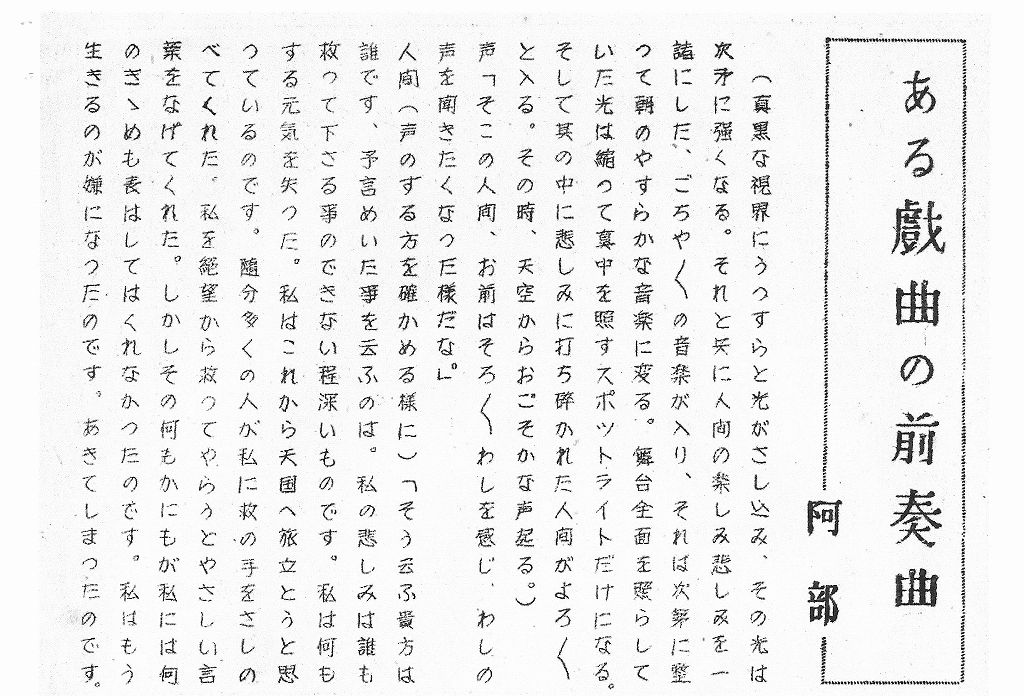 ある戯曲の前奏曲
阿部
(真黒な視界にうつすらと光がさし込み、その光は
次才に強くなる。それと共に人间の楽しみ悲しみを一
諸にした、ごちや〳〵の音楽が入り、それは次第に整
つて朝のやすらかな音楽に変る。舞台全面を照らして
いた光は縮つて真中を照すスポツトライトだけになる。
そして其の中に悲しみに打ち碎かれた人间がよろ〳〵
と入る。その時、天空からおごそかな声起る。)
声「そこの人间、お前はそろ〳〵わしを感じ、わしの
声を闻きたくなつた様だな」。
人间(声のする方を確かめる様に)「そう云ふ貴方は
誰です、予言めいた事を云ふのは。私の悲しみは誰も
救つて下さる事のできない程深いものです。私は何も
する元気を失つた。私はこれから天国へ旅立とうと思
つているのです。随分多くの人が私に救の手をさしの
べてくれた。私を絶望から救つてやらうとやさしい言
葉をなげてくれた。しかしその何もかにもが私には何
のきゝめも表はしてはくれなかつたのです。私はもう
生きるのが嫌になつたのです。あきてしまつたのです。